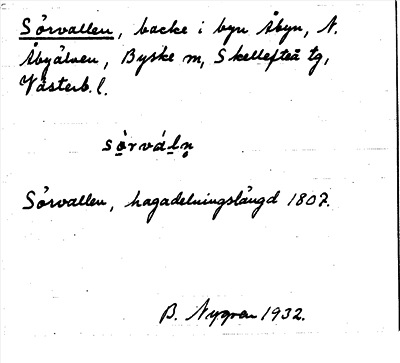 Sörvallen, backe i byn Åbyn, N.
Åbyälven, Byske sn, Skellefteå tg,
Västerb. l.
sö̀rváln̥
Sörvallen, hagadelningslängd 1807.
B. Nygren 1932.